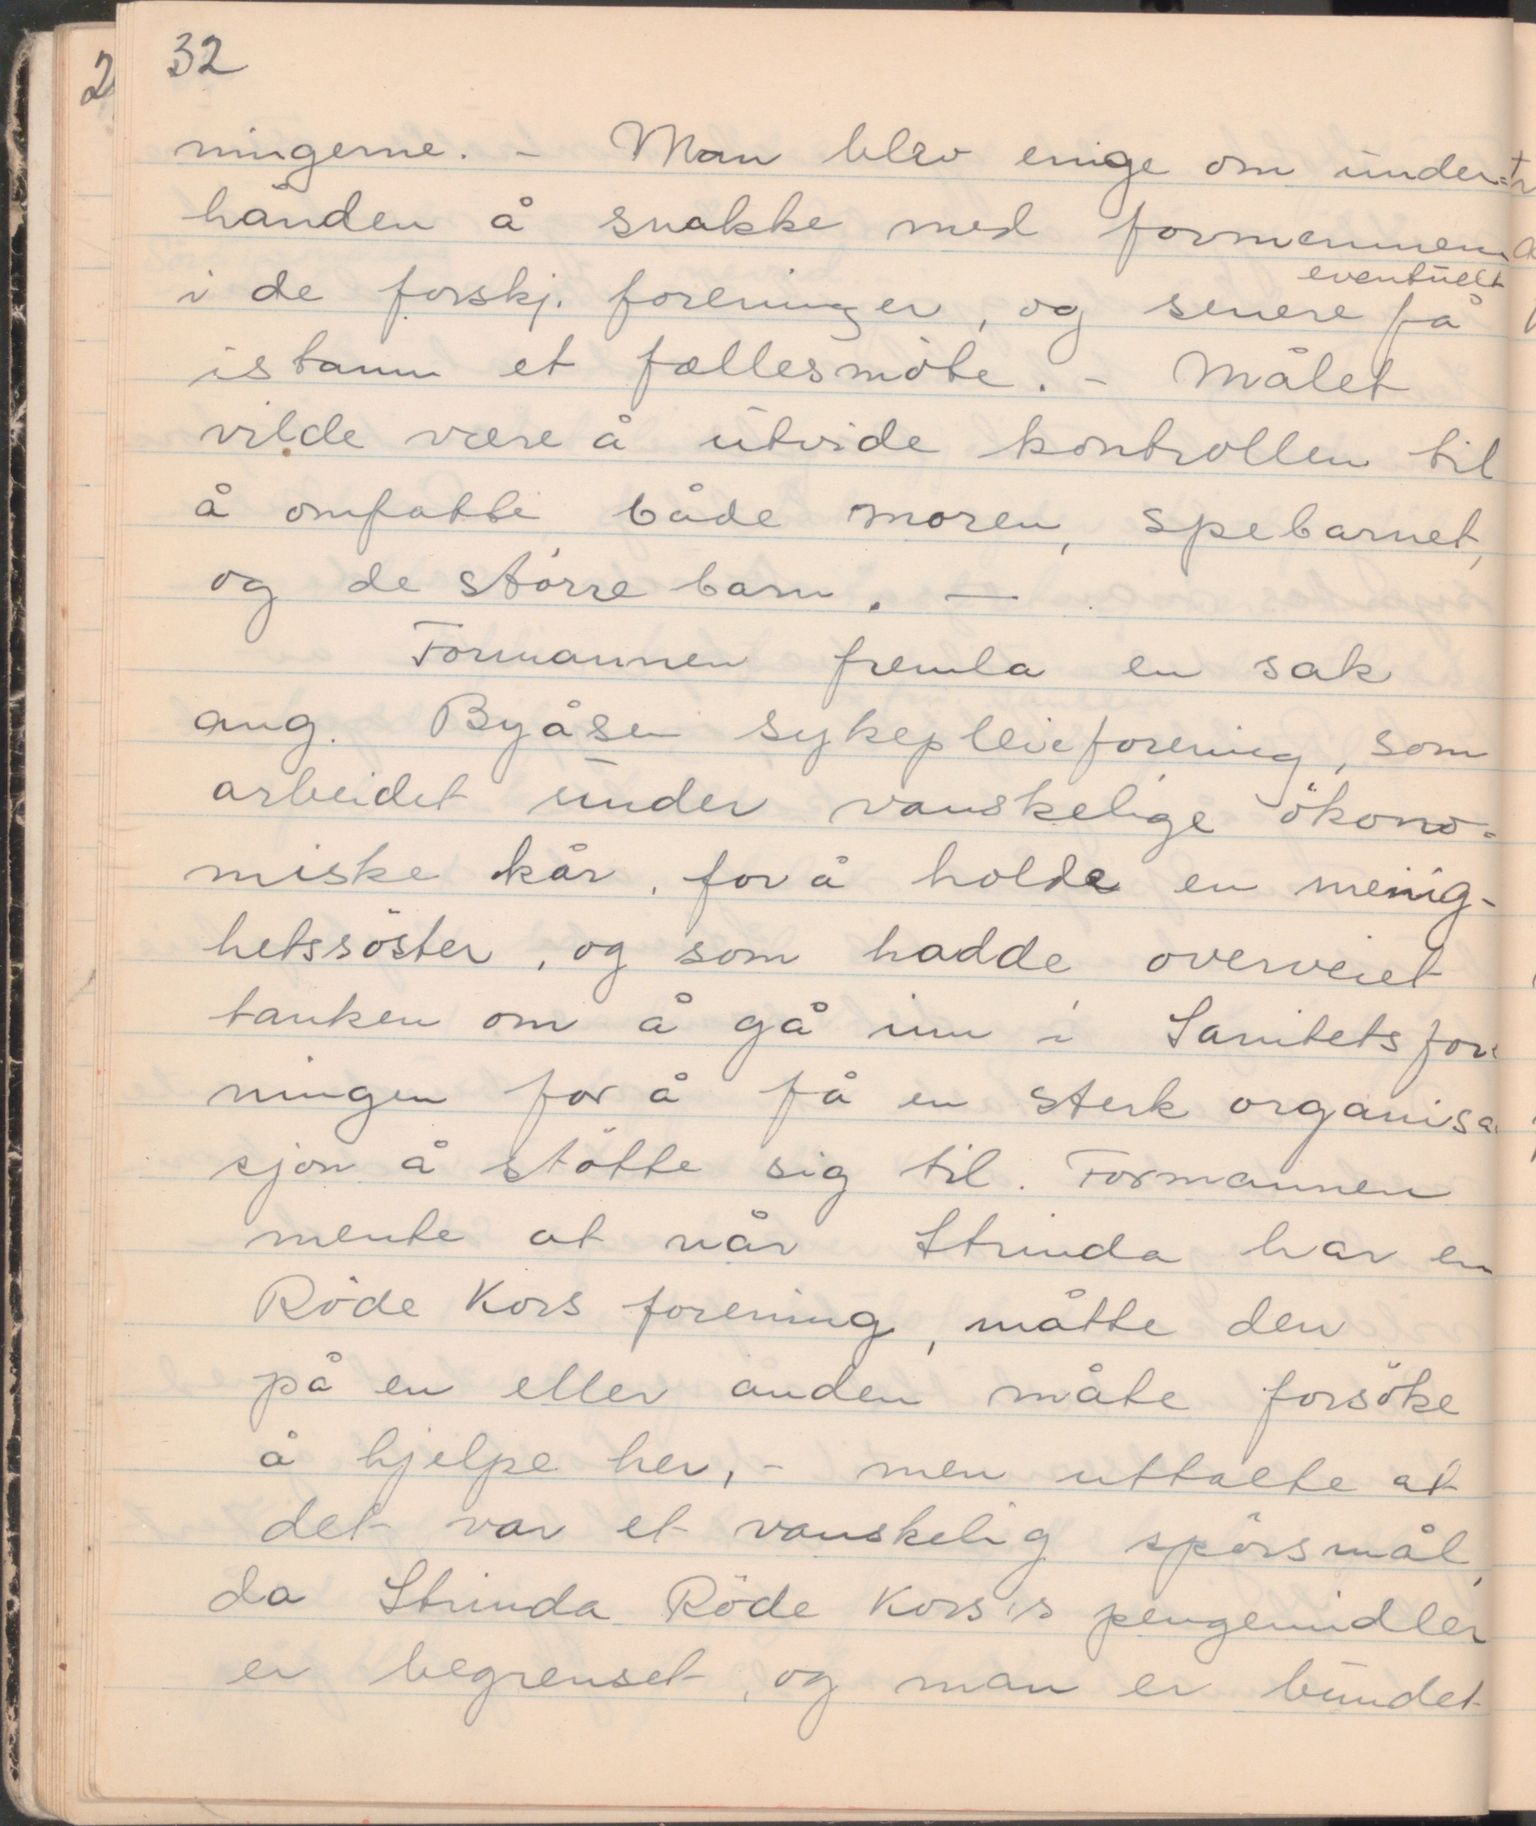 32
ningerne. - Man blev enige om under=
hånden å snakke med formennene
i de forskj. foreninger, og senere eventuelt få
istann et fællesmöte. - Målet
vilde være å utvide kontrollen til
å omfatte både moren, spebarnet,
og de större barn. —
Formannen fremla en sak
ang. Byåsen sykepleieforening, som
arbeidet under vanskelige ökono=
miske kår, for å holde en menig-
hetssöster, og som hadde overveiet
tanken om å gå inn i Sanitetsfore
ningen for å få en sterk organisa
sjon å stötte sig til. Formannen
mente at når Strinda har en
Röde Kors forening, måtte den
på en eller anden måte forsöke
å hjelpe her, - men uttalte at
det var et vanskelig spörsmål,
da Strinda Röde Kors's pengemidler
er begrenset, og man er bundet